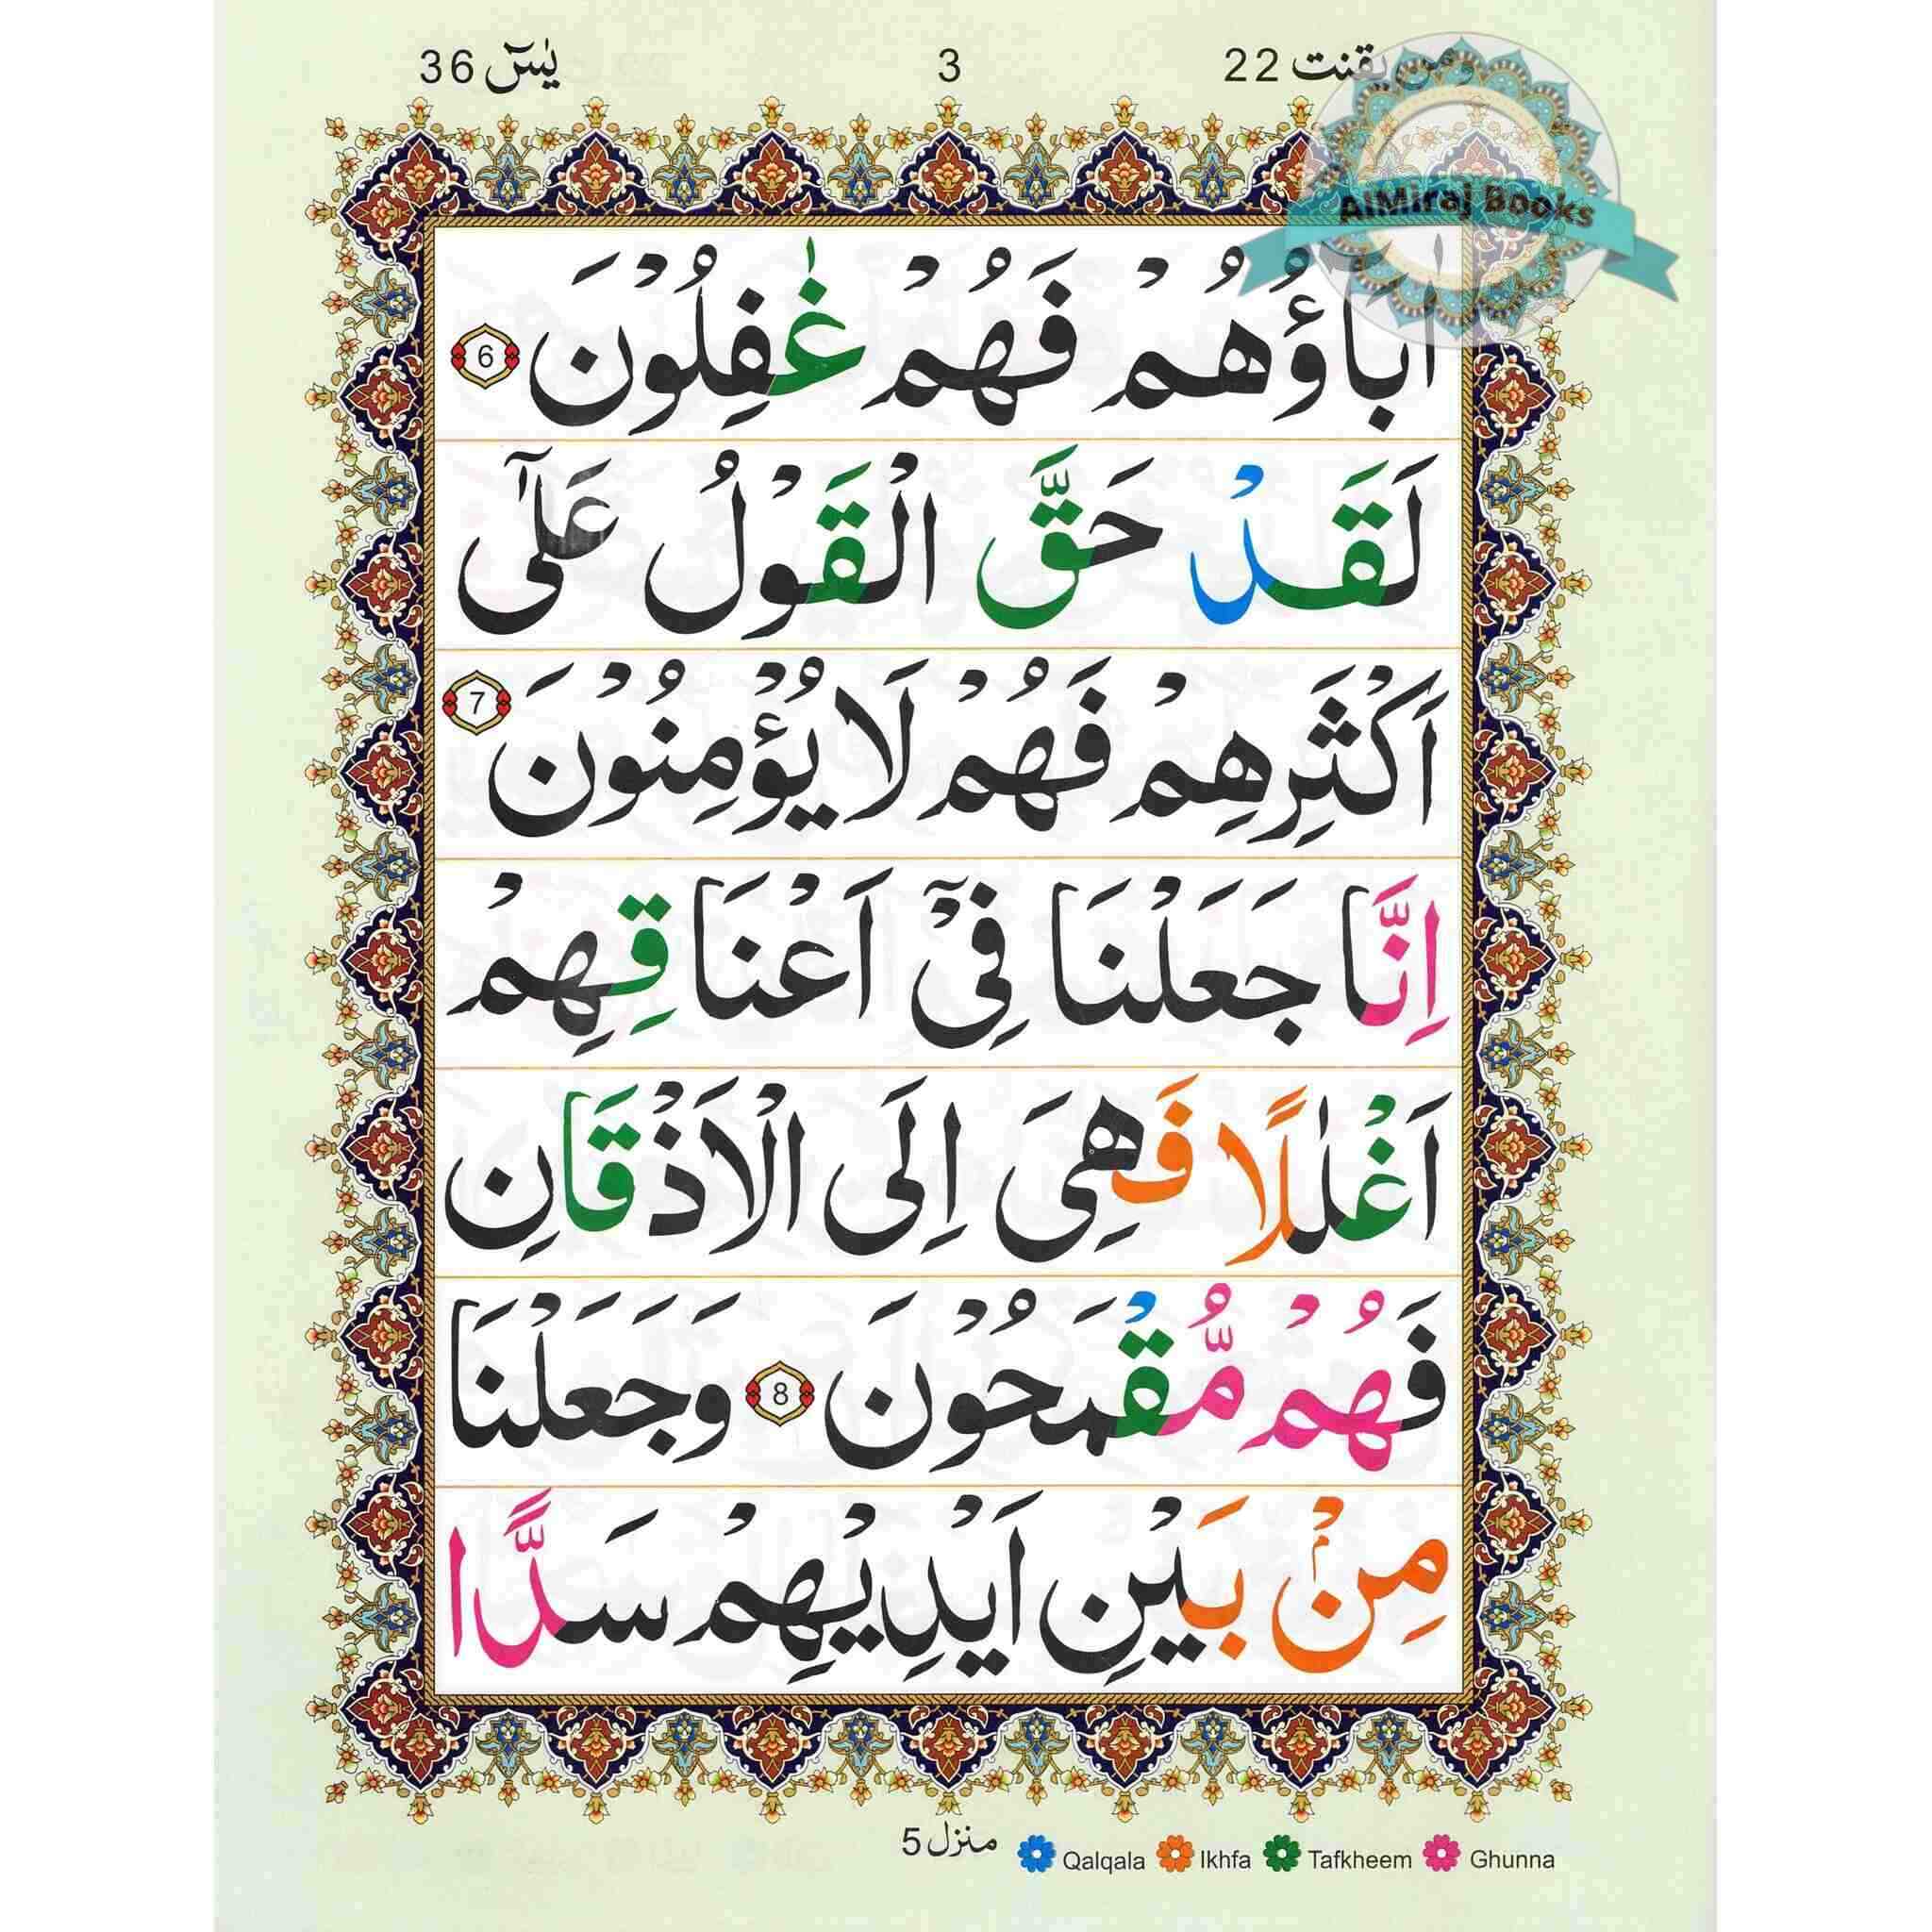 ومن يقنت 22
3
يٰسٓ 36
AlMiraj Books
اٰبَآؤُهُمْ فَهُمْ غٰفِلُوْنَ 6
لَقَدْ حَقَّ الْقَوْلُ عَلٰٓى
اَكْثَرِهِمْ فَهُمْ لَا يُؤْمِنُوْنَ 7
اِنَّا جَعَلْنَا فِىْٓ اَعْنَاقِهِمْ
اَغْلٰلًا فَهِىَ اِلَى الْاَذْقَانِ
فَهُمْ مُّقْمَحُوْنَ 8 وَجَعَلْنَا
مِنْۢ بَيْنِ اَيْدِيْهِمْ سَدًّا
منزل 5
Qalqala Ikhfa Tafkheem Ghunna